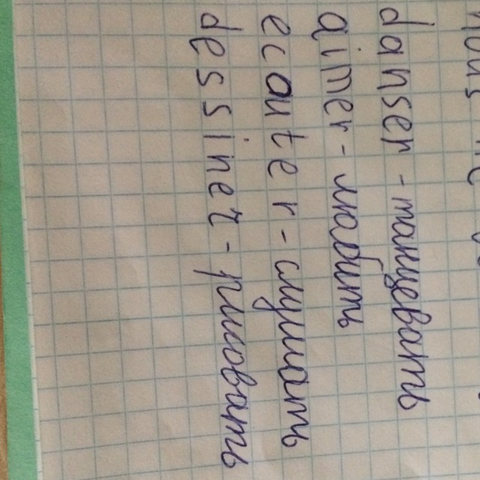 nous
danser - танцевать
aimer - любить
ecauter - слушать
dessiner - рисовать